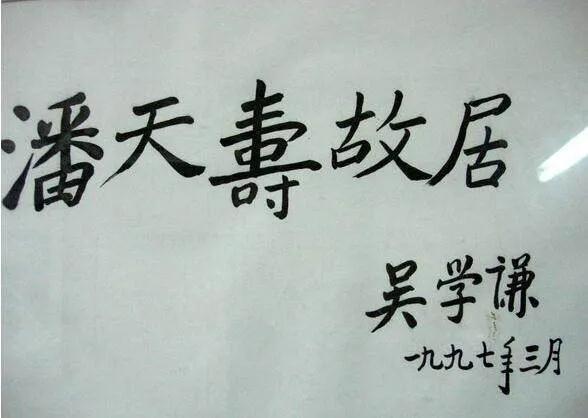 潘天壽故居
吴学谦
一九九七年三月